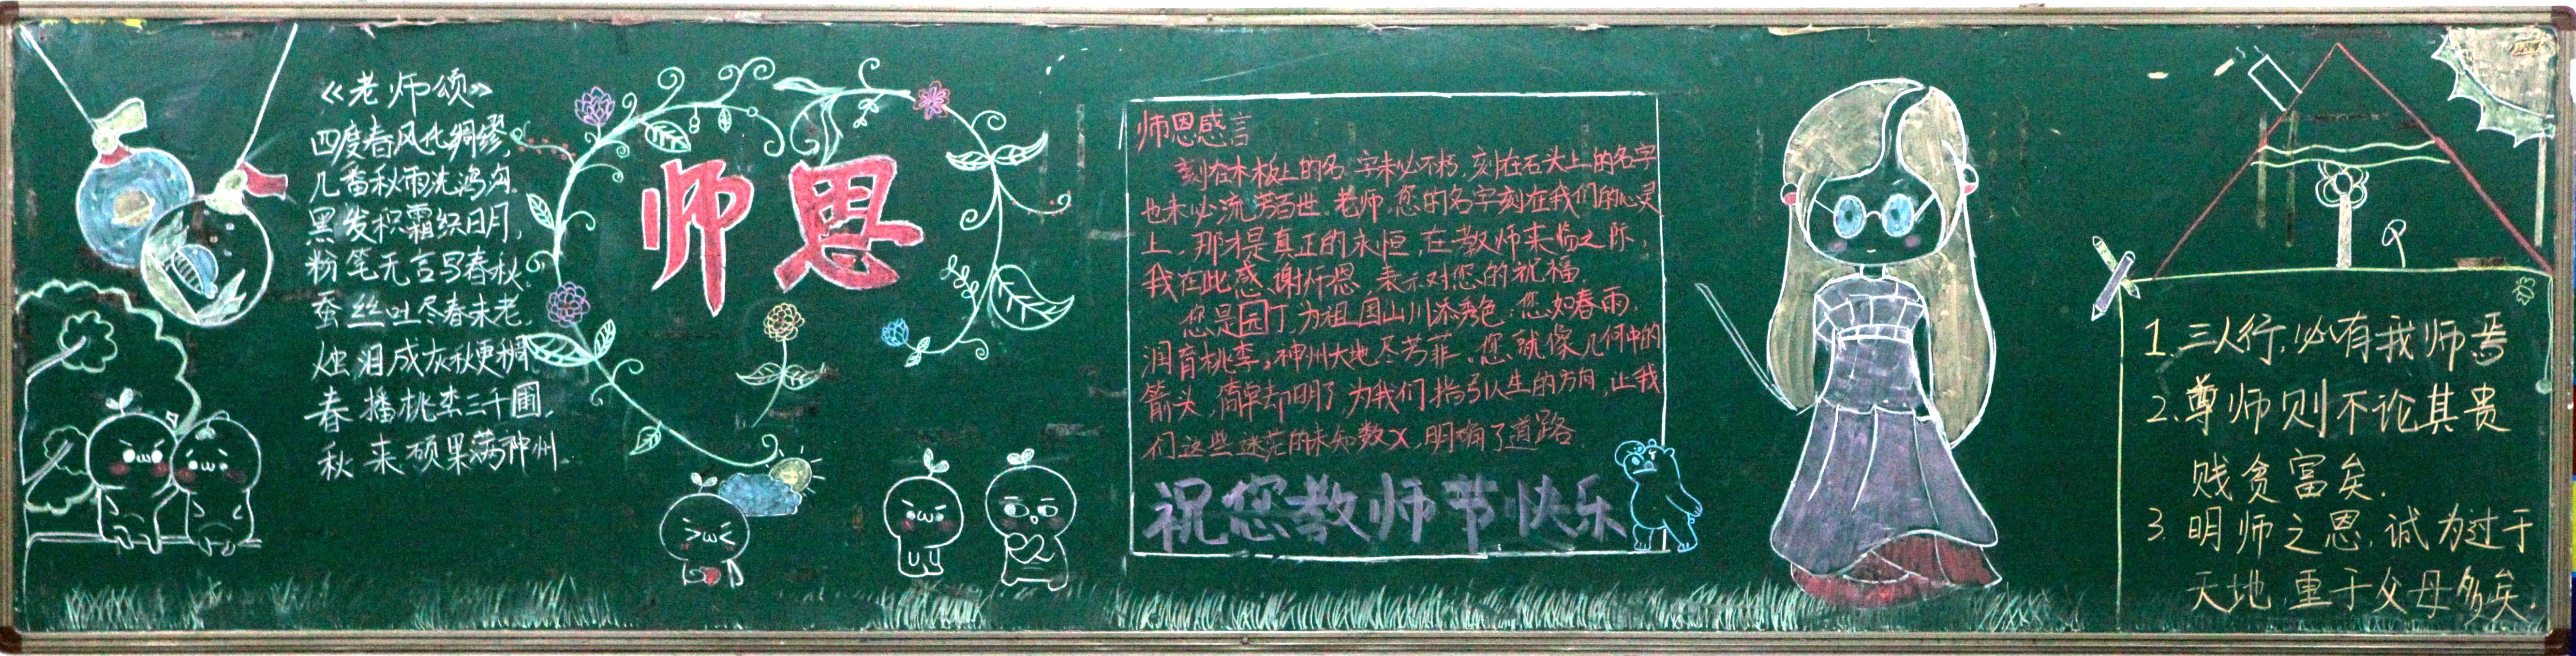 《老师颂》
四度春风化绸缪,
几番秋雨洗鸿沟.
黑发积霜织日月,
粉笔无言写春秋.
蚕丝吐尽春未老,
烛泪成灰秋更稠
春播桃李三千圃,
秋来硕果满神州.
师恩
师恩感言
刻在木板上的名字未必不朽,刻在石头上的名字
也未必流芳百世.老师,您的名字刻在我们的心灵
上,那才是真正的永恒,在教师来临之际,
我在此感谢师恩,表示对您的祝福.
您是园丁,为祖国山川添秀色;您如春雨,
润育桃李,神州大地尽芳菲。您就像几何中的
箭头,简单却明了,为我们指引人生的方向,让我
们这些迷茫的未知数x,明确了道路.
祝您教师节快乐
1.三人行,必有我师焉
2.尊师则不论其贵
贱贫富矣.
3.明师之恩,诚为过于
天地,重于父母多矣.